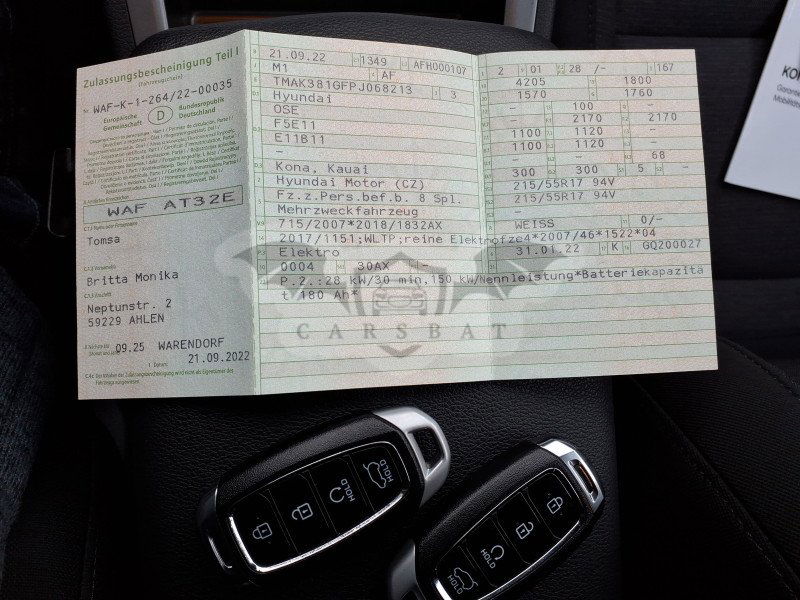 Zulassungsbescheinigung Teil I
(Fahrzeugschein)
Nr. WAF-K-1-264/22-00035
Europäische Gemeinschaft
D
Bundesrepublik Deutschland
WAF AT32E
Tomsa
Britta Monika
Neptunstr. 2
59229 AHLEN
09.25 WARENDORF
21.09.2022
C4c Der Inhaber der Zulassungsbescheinigung wird nicht als Eigentümer des Fahrzeugs ausgewiesen.
21.09.22 1349 AFH000107
M1 AF
TMAK381GFPJ068213 3
Hyundai
OSE
F5E11
E11B11
–
Kona, Kauai
Hyundai Motor (CZ)
Fz.z.Pers.bef.b. 8 Spl.
Mehrzweckfahrzeug
715/2007*2018/1832AX
2017/1151;WLTP;reine Elektrofz
Elektro
0004 30AX –
P.2.:28 kW/30 min,150 kW/Nennleistung*Batteriekapazitä
t 180 Ah*
2 01 28 /- 167
4205 1800
1570 1760
– 100 –
– 2170 2170
1100 1120 –
1100 1120 –
– – 68
300 300 5 –
215/55R17 94V
215/55R17 94V
–
WEISS 0/–
e4*2007/46*1522*04
31.01.22 K GQ200027
CARSBAT
HOLD
HOLD
HOLD
HOLD
KO
Garantie
Mobilitäts